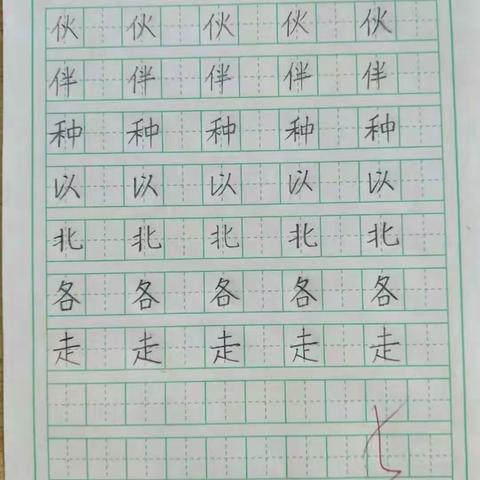 伙伙伙伙伙
伴伴伴伴伴
种种种种种
以以以以以
北北北北北
各各各各各
走走走走走